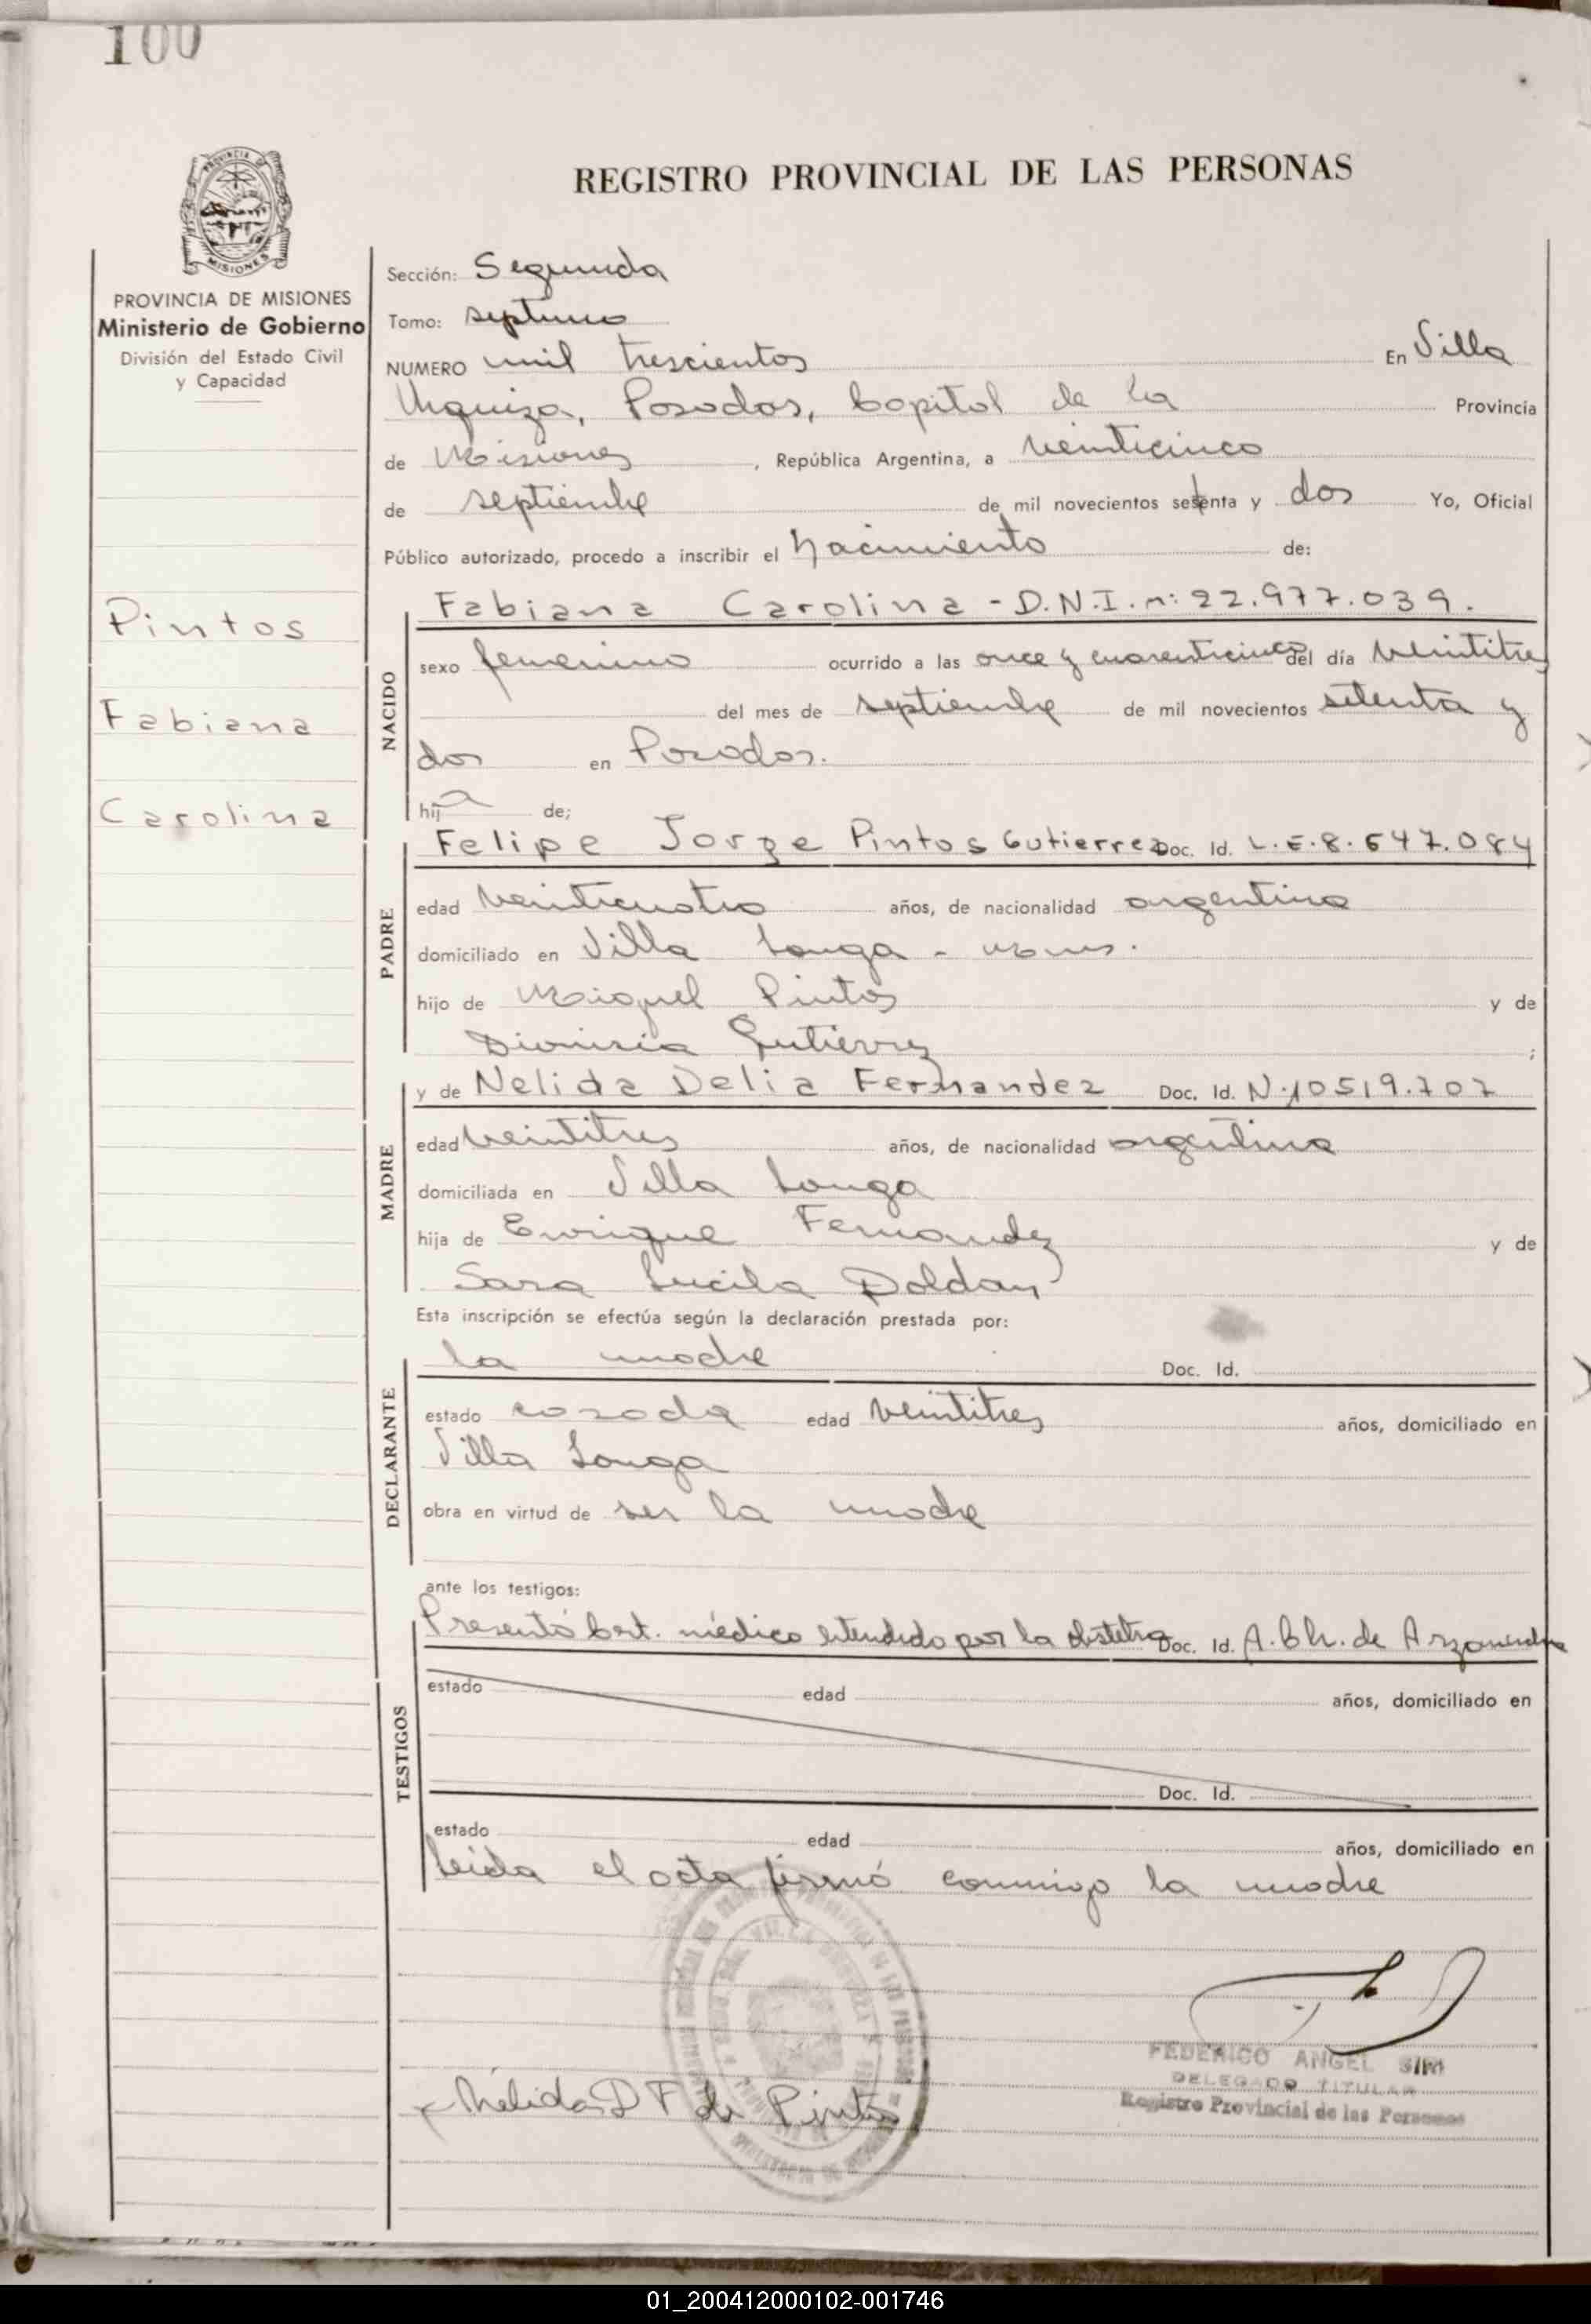 100
REGISTRO PROVINCIAL DE LAS PERSONAS
PROVINCIA DE MISIONES
Ministerio de Gobierno
División del Estado Civil
y Capacidad
Pintos
Fabiana
Carolina
Sección: Segunda
Tomo: septimo
NUMERO mil trescientos En Villa
Urquiza, Posadas, Capital de la Provincia
de Misiones, República Argentina, a veinticinco
de septiembre de mil novecientos setenta y dos Yo, Oficial
Público autorizado, procedo a inscribir el Nacimiento de:
NACIDO
Fabiana Carolina - D.N.I. n: 22.977.039.
sexo femenino ocurrido a las once y cuarenticinco del día veintitres
del mes de septiembre de mil novecientos setenta y
dos en Posadas.
hija de;
PADRE
Felipe Jorge Pintos Gutierrez Doc. Id. L.E.8.547.084
edad veinticuatro años, de nacionalidad argentina
domiciliado en Villa Longa -
hijo de Miguel Pintos y de
Dionisia Gutierrez ;
MADRE
y de Nelida Delia Fernandez Doc. Id. N.10519.707
edad veintitres años, de nacionalidad argentina
domiciliada en Villa Longa
hija de Enrique Fernandez y de
Sara Lucila Doldan
Esta inscripción se efectúa según la declaración prestada por:
DECLARANTE
la madre Doc. Id.
estado casada edad veintitres años, domiciliado en
Villa Longa
obra en virtud de ser la madre
ante los testigos:
TESTIGOS
Presentó Cert. médico extendido por la obstetra Doc. Id. A. Ch. de
estado edad años, domiciliado en
Doc. Id.
estado edad años, domiciliado en
Leida el acta firmó conmigo la madre
Nélida D F de Pintos
FEDERICO ANGEL
DELEGADO TITULAR
Registro Provincial de las Personas
01_200412000102-001746